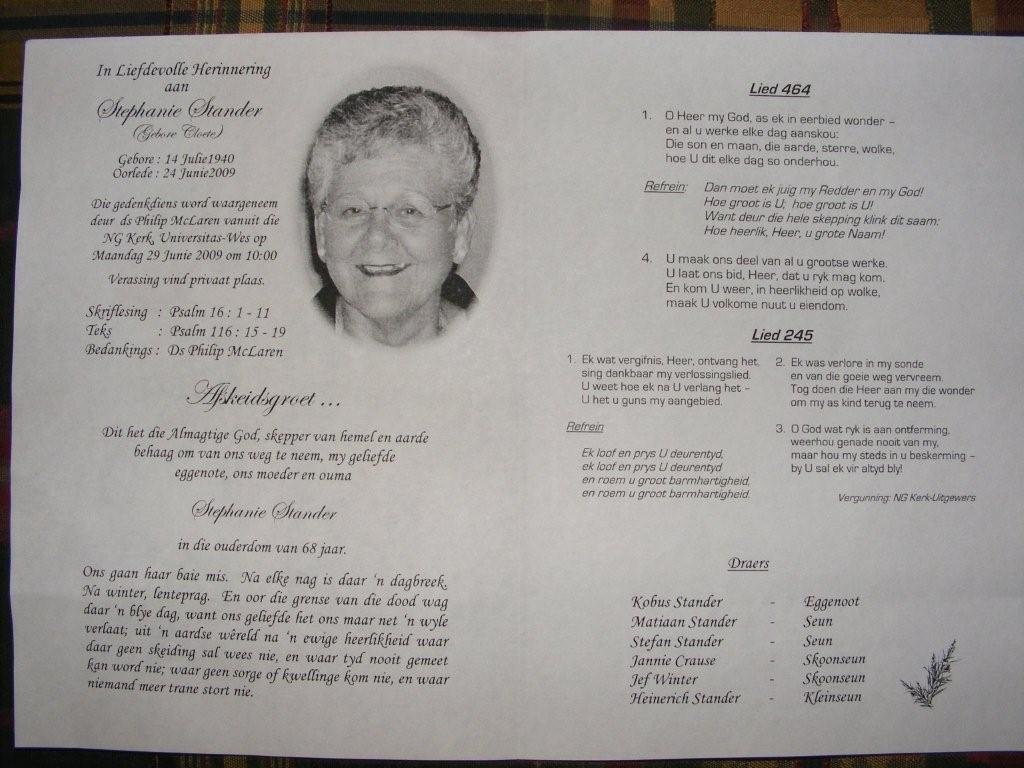 In Liefdevolle Herinnering
aan
Stephanie Stander
(Gebore Cloete)
Gebore : 14 Julie1940
Oorlede : 24 Junie2009
Die gedenkdiens word waargeneem
deur ds Philip McLaren vanuit die
NG Kerk, Universitas-Wes op
Maandag 29 Junie 2009 om 10:00
Verassing vind privaat plaas.
Skriflesing : Psalm 16 : 1 - 11
Teks : Psalm 116 : 15 - 19
Bedankings : Ds Philip McLaren
Afskeidsgroet ...
Dit het die Almagtige God, skepper van hemel en aarde
behaag om van ons weg te neem, my geliefde
eggenote, ons moeder en ouma
Stephanie Stander
in die ouderdom van 68 jaar.
Ons gaan haar baie mis. Na elke nag is daar 'n dagbreek.
Na winter, lenteprag. En oor die grense van die dood wag
daar 'n blye dag, want ons geliefde het ons maar net 'n wyle
verlaat; uit 'n aardse wêreld na 'n ewige heerlikheid waar
daar geen skeiding sal wees nie, en waar tyd nooit gemeet
kan word nie; waar geen sorge of kwellinge kom nie, en waar
niemand meer trane stort nie.
Lied 464
1. O Heer my God, as ek in eerbied wonder –
en al u werke elke dag aanskou:
Die son en maan, die aarde, sterre, wolke,
hoe U dit elke dag so onderhou.
Refrein: Dan moet ek juig my Redder en my God!
Hoe groot is U; hoe groot is U!
Want deur die hele skepping klink dit saam:
Hoe heerlik, Heer, u grote Naam!
4. U maak ons deel van al u grootse werke.
U laat ons bid, Heer, dat u ryk mag kom.
En kom U weer, in heerlikheid op wolke,
maak U volkome nuut u eiendom.
Lied 245
1. Ek wat vergifnis, Heer, ontvang het,
sing dankbaar my verlossingslied.
U weet hoe ek na U verlang het –
U het u guns my aangebied.
Refrein
Ek loof en prys U deurentyd,
ek loof en prys U deurentyd
en roem u groot barmhartigheid,
en roem u groot barmhartigheid.
2. Ek was verlore in my sonde
en van die goeie weg vervreem.
Tog doen die Heer aan my die wonder
om my as kind terug te neem.
3. O God wat ryk is aan ontferming,
weerhou genade nooit van my,
maar hou my steds in u beskerming –
by U sal ek vir altyd bly!
Vergunning: NG Kerk-Uitgewers
Draers
Kobus Stander - Eggenoot
Matiaan Stander - Seun
Stefan Stander - Seun
Jannie Crause - Skoonseun
Jef Winter - Skoonseun
Heinerich Stander - Kleinseun